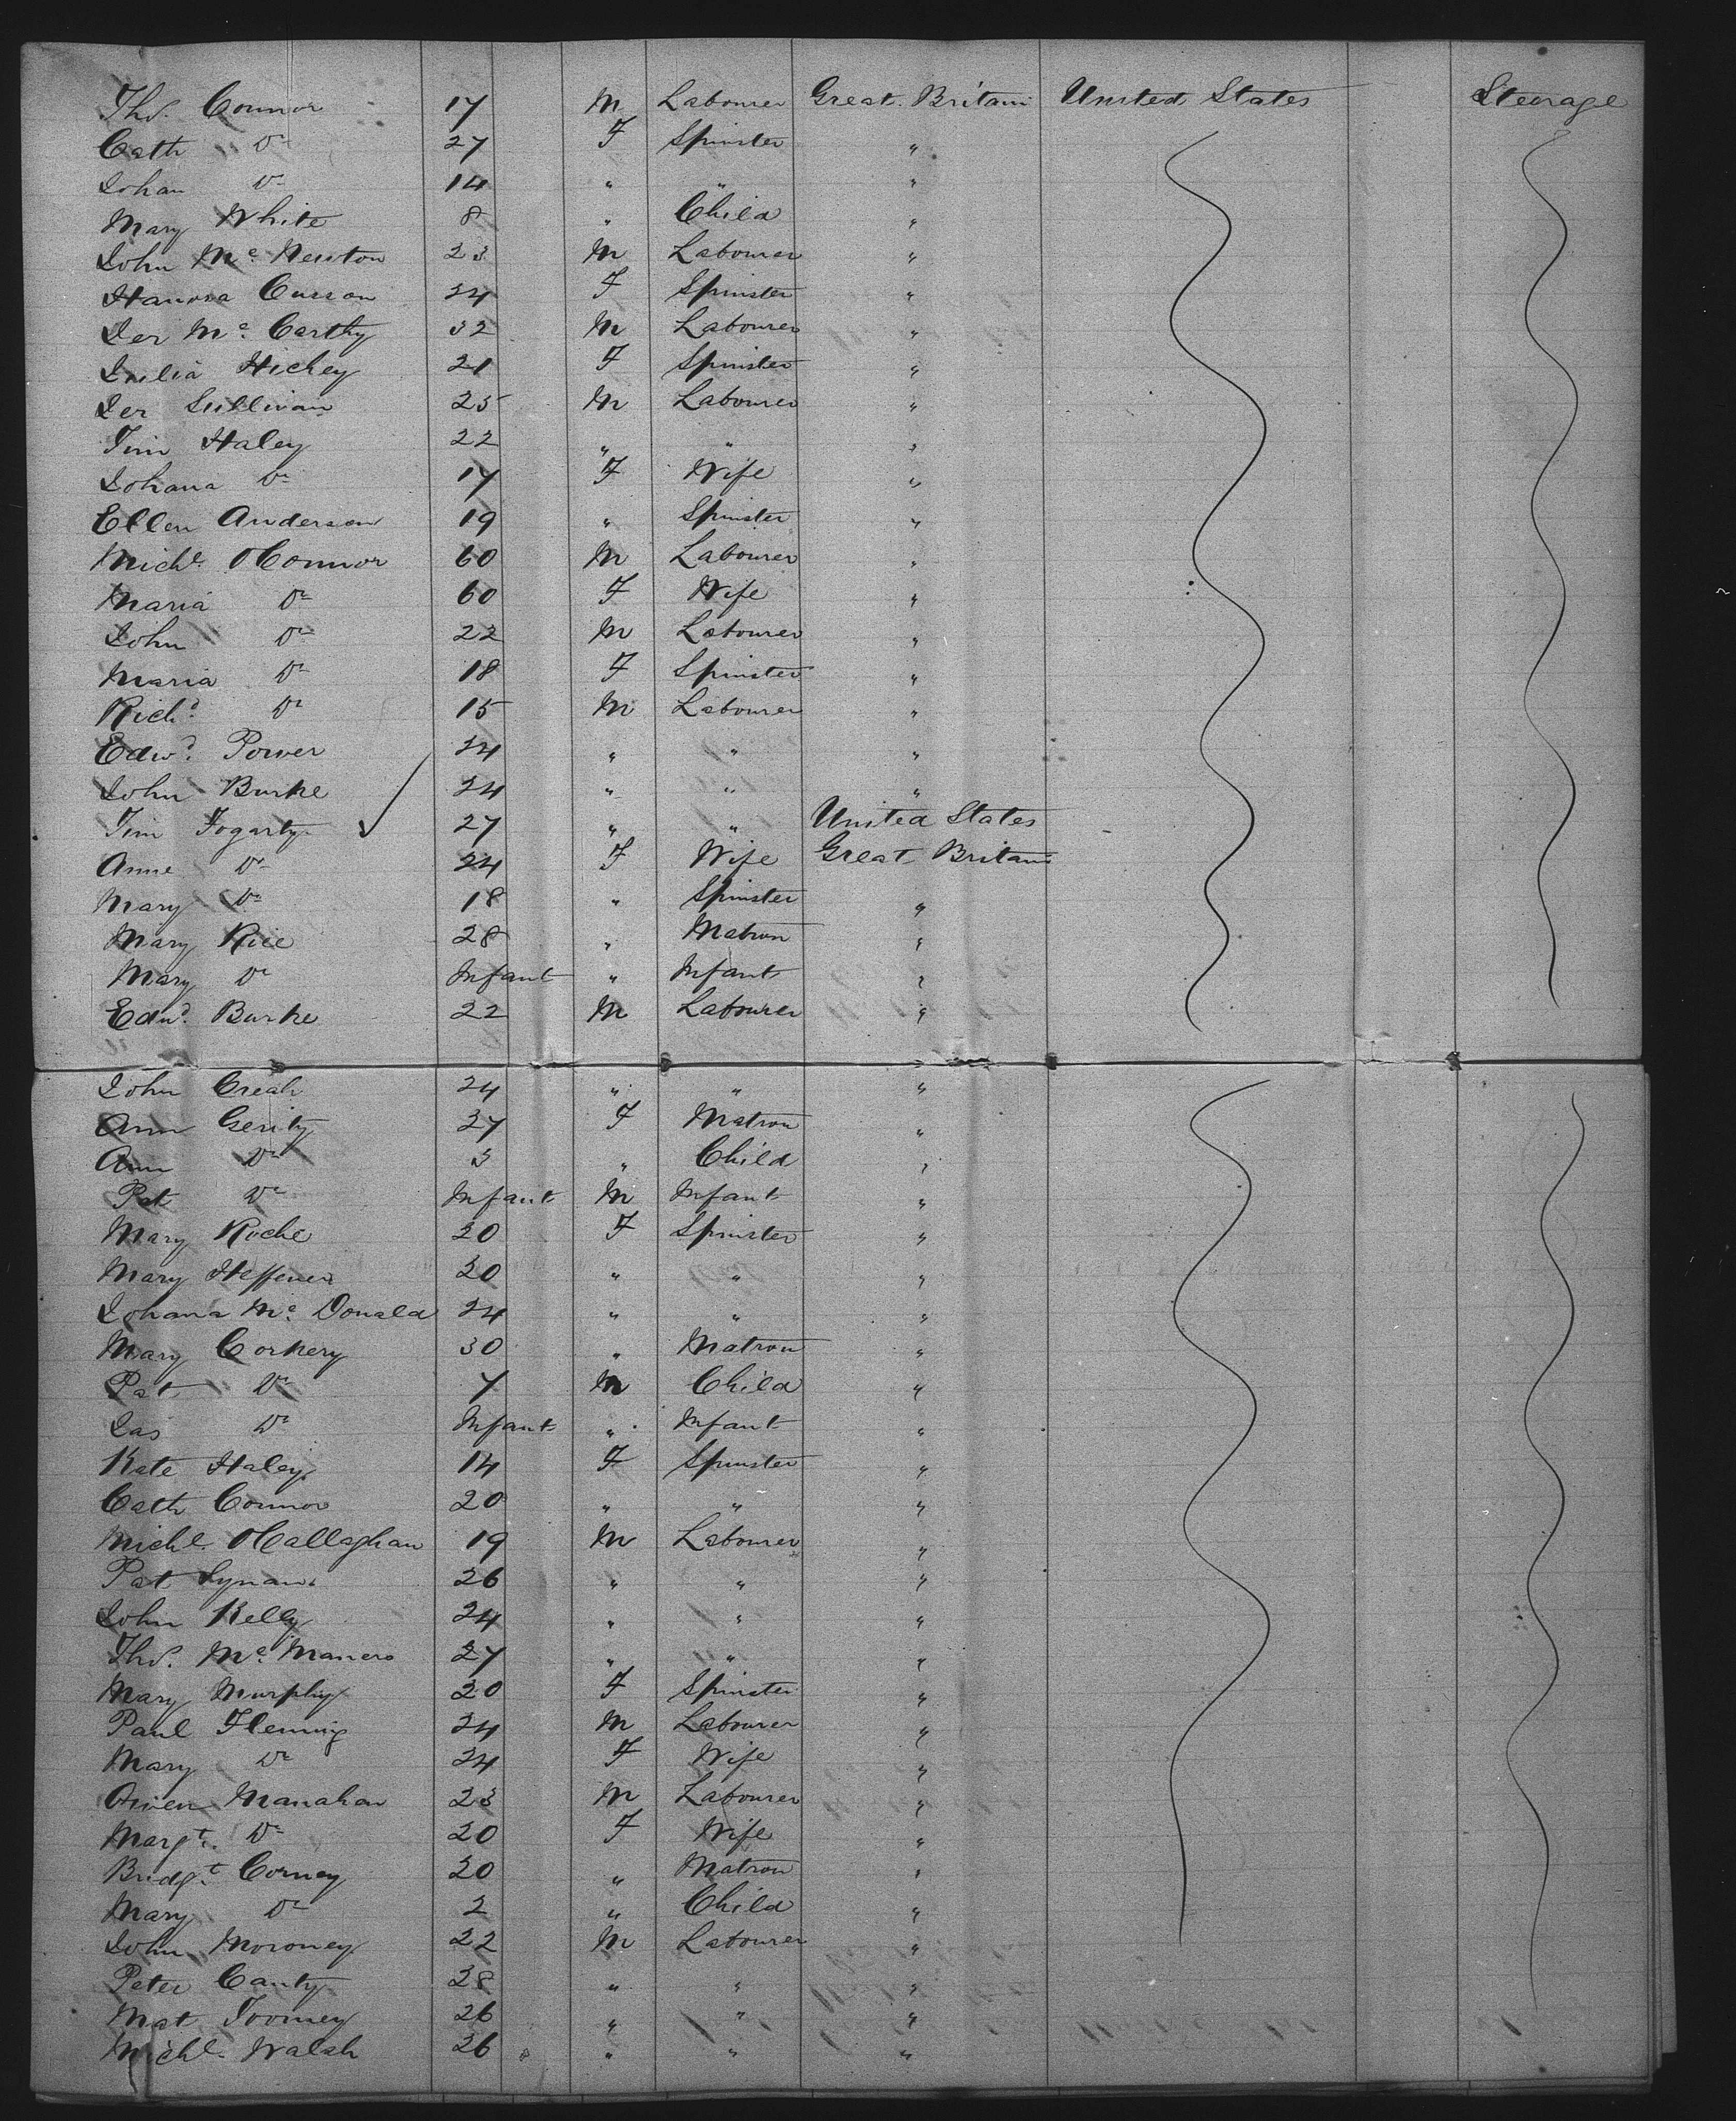 Thos. Connor 17 M Labourer Great Britain United States Steerage
Cath Do 27 F Spinster "
Johan Do 14 " " "
Mary White 8 " Child "
John Mc Newton 23 M Labourer "
Hanora Curson 24 F Spinster "
Jer Mc Carthy 32 M Labourer "
Julia Hickey 21 F Spinster "
Jer Sullivan 25 M Labourer "
Tim Haley 22 " " "
Johana Do 17 F Wife "
Ellen Anderson 19 " Spinster "
Michl. OConnor 60 M Labourer "
Maria Do 60 F Wife "
John Do 22 M Labourer "
Maria Do 18 F Spinster "
Richd. Do 15 M Labourer "
Edwd. Power 24 " " "
John Burke 24 " " "
Tim Fogarty 27 " " United States
Anne Do 24 F Wife Great Britain
Mary Do 18 " Spinster "
Mary Rice 28 " Matron "
Mary Do Infant " Infant "
Edwd. Burke 22 M Labourer "
John Creah 24 " " "
Ann Gerity 27 F Matron "
Ann Do 3 " Child "
Pat Do Infant M Infant "
Mary Roche 20 F Spinster "
Mary Heffener 20 " " "
Johana Mc Donald 24 " " "
Mary Corkery 30 " Matron "
Pat Do 7 M Child "
Jas Do Infant " Infant "
Kate Haley 14 F Spinster "
Cath Connor 20 " " "
Michl. OCallaghan 19 M Labourer "
Pat Lynan 26 " " "
John Kelly 24 " " "
Thos. Mc Maners 27 " " "
Mary Murphy 20 F Spinster "
Paul Fleming 24 M Labourer "
Mary Do 24 F Wife "
Owen Manahan 23 M Labourer "
Margt. Do 20 F Wife "
Bridgt. Corney 20 " Matron "
Mary Do 2 " Child "
John Moroney 22 M Labourer "
Peter Canty 28 " " "
Mat Toomey 26 " " "
Michl. Walsh 26 " " "